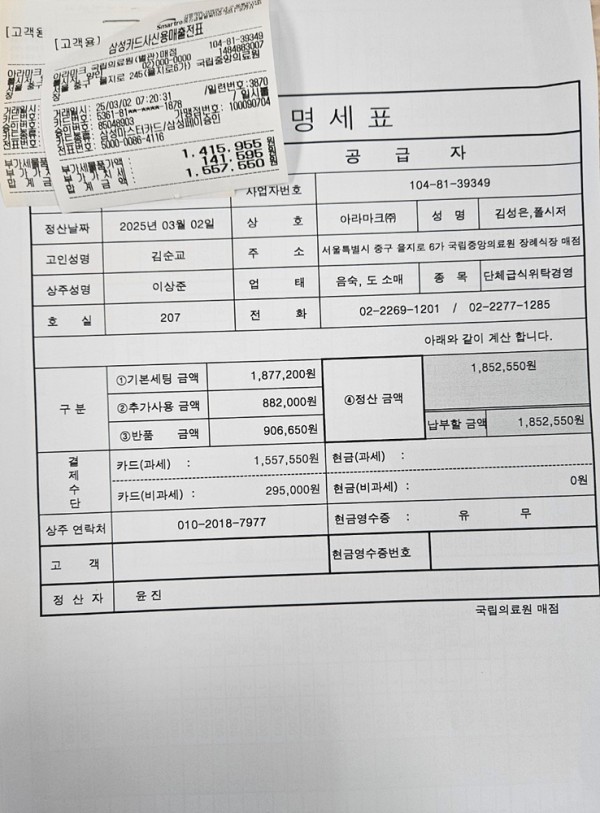 [고객용)
[고객용)
삼성카드사신용매출전표
104-81-39349
아라마크 국립의료원(별관)매점
02)000-0000
1484883007
서울 중구 을지로 245(을지로6가) 국립중앙의료원
장
거래일시: 25/03/02 07:20:31 /일련번호:3870
카드번호: 5361-81**-****-1678 / 일시불
승인번호: 85048903 가맹점번호: 100090704
카드종류: 삼성마스터카드/삼성페이승인
전표번호: 5000-0086-4116
부가세물품가액: 1,415,955 원
부 가 가 치 세: 141,595 원
합 계 금 액: 1,557,550 원
명 세 표
공 급 자
사업자번호 104-81-39349
정산날짜 2025년 03월 02일 상 호 아라마크㈜ 성 명 김성은,폴시저
고인성명 김순교 주 소 서울특별시 중구 을지로 6가 국립중앙의료원 장례식장 매점
상주성명 이상준 업 태 음숙, 도 소매 종 목 단체급식위탁경영
호 실 207 전 화 02-2269-1201 / 02-2277-1285
아래와 같이 계산 합니다.
구 분 ①기본세팅 금액 1,877,200원 ④정산 금액 1,852,550원
②추가사용 금액 882,000원
③반품 금액 906,650원 납부할 금액 1,852,550원
결제수단 카드(과세) : 1,557,550원 현금(과세) :
카드(비과세) : 295,000원 현금(비과세) : 0원
상주 연락처 010-2018-7977 현금영수증 : 유 무
고 객 현금영수증번호
정 산 자 윤 진
국립의료원 매점